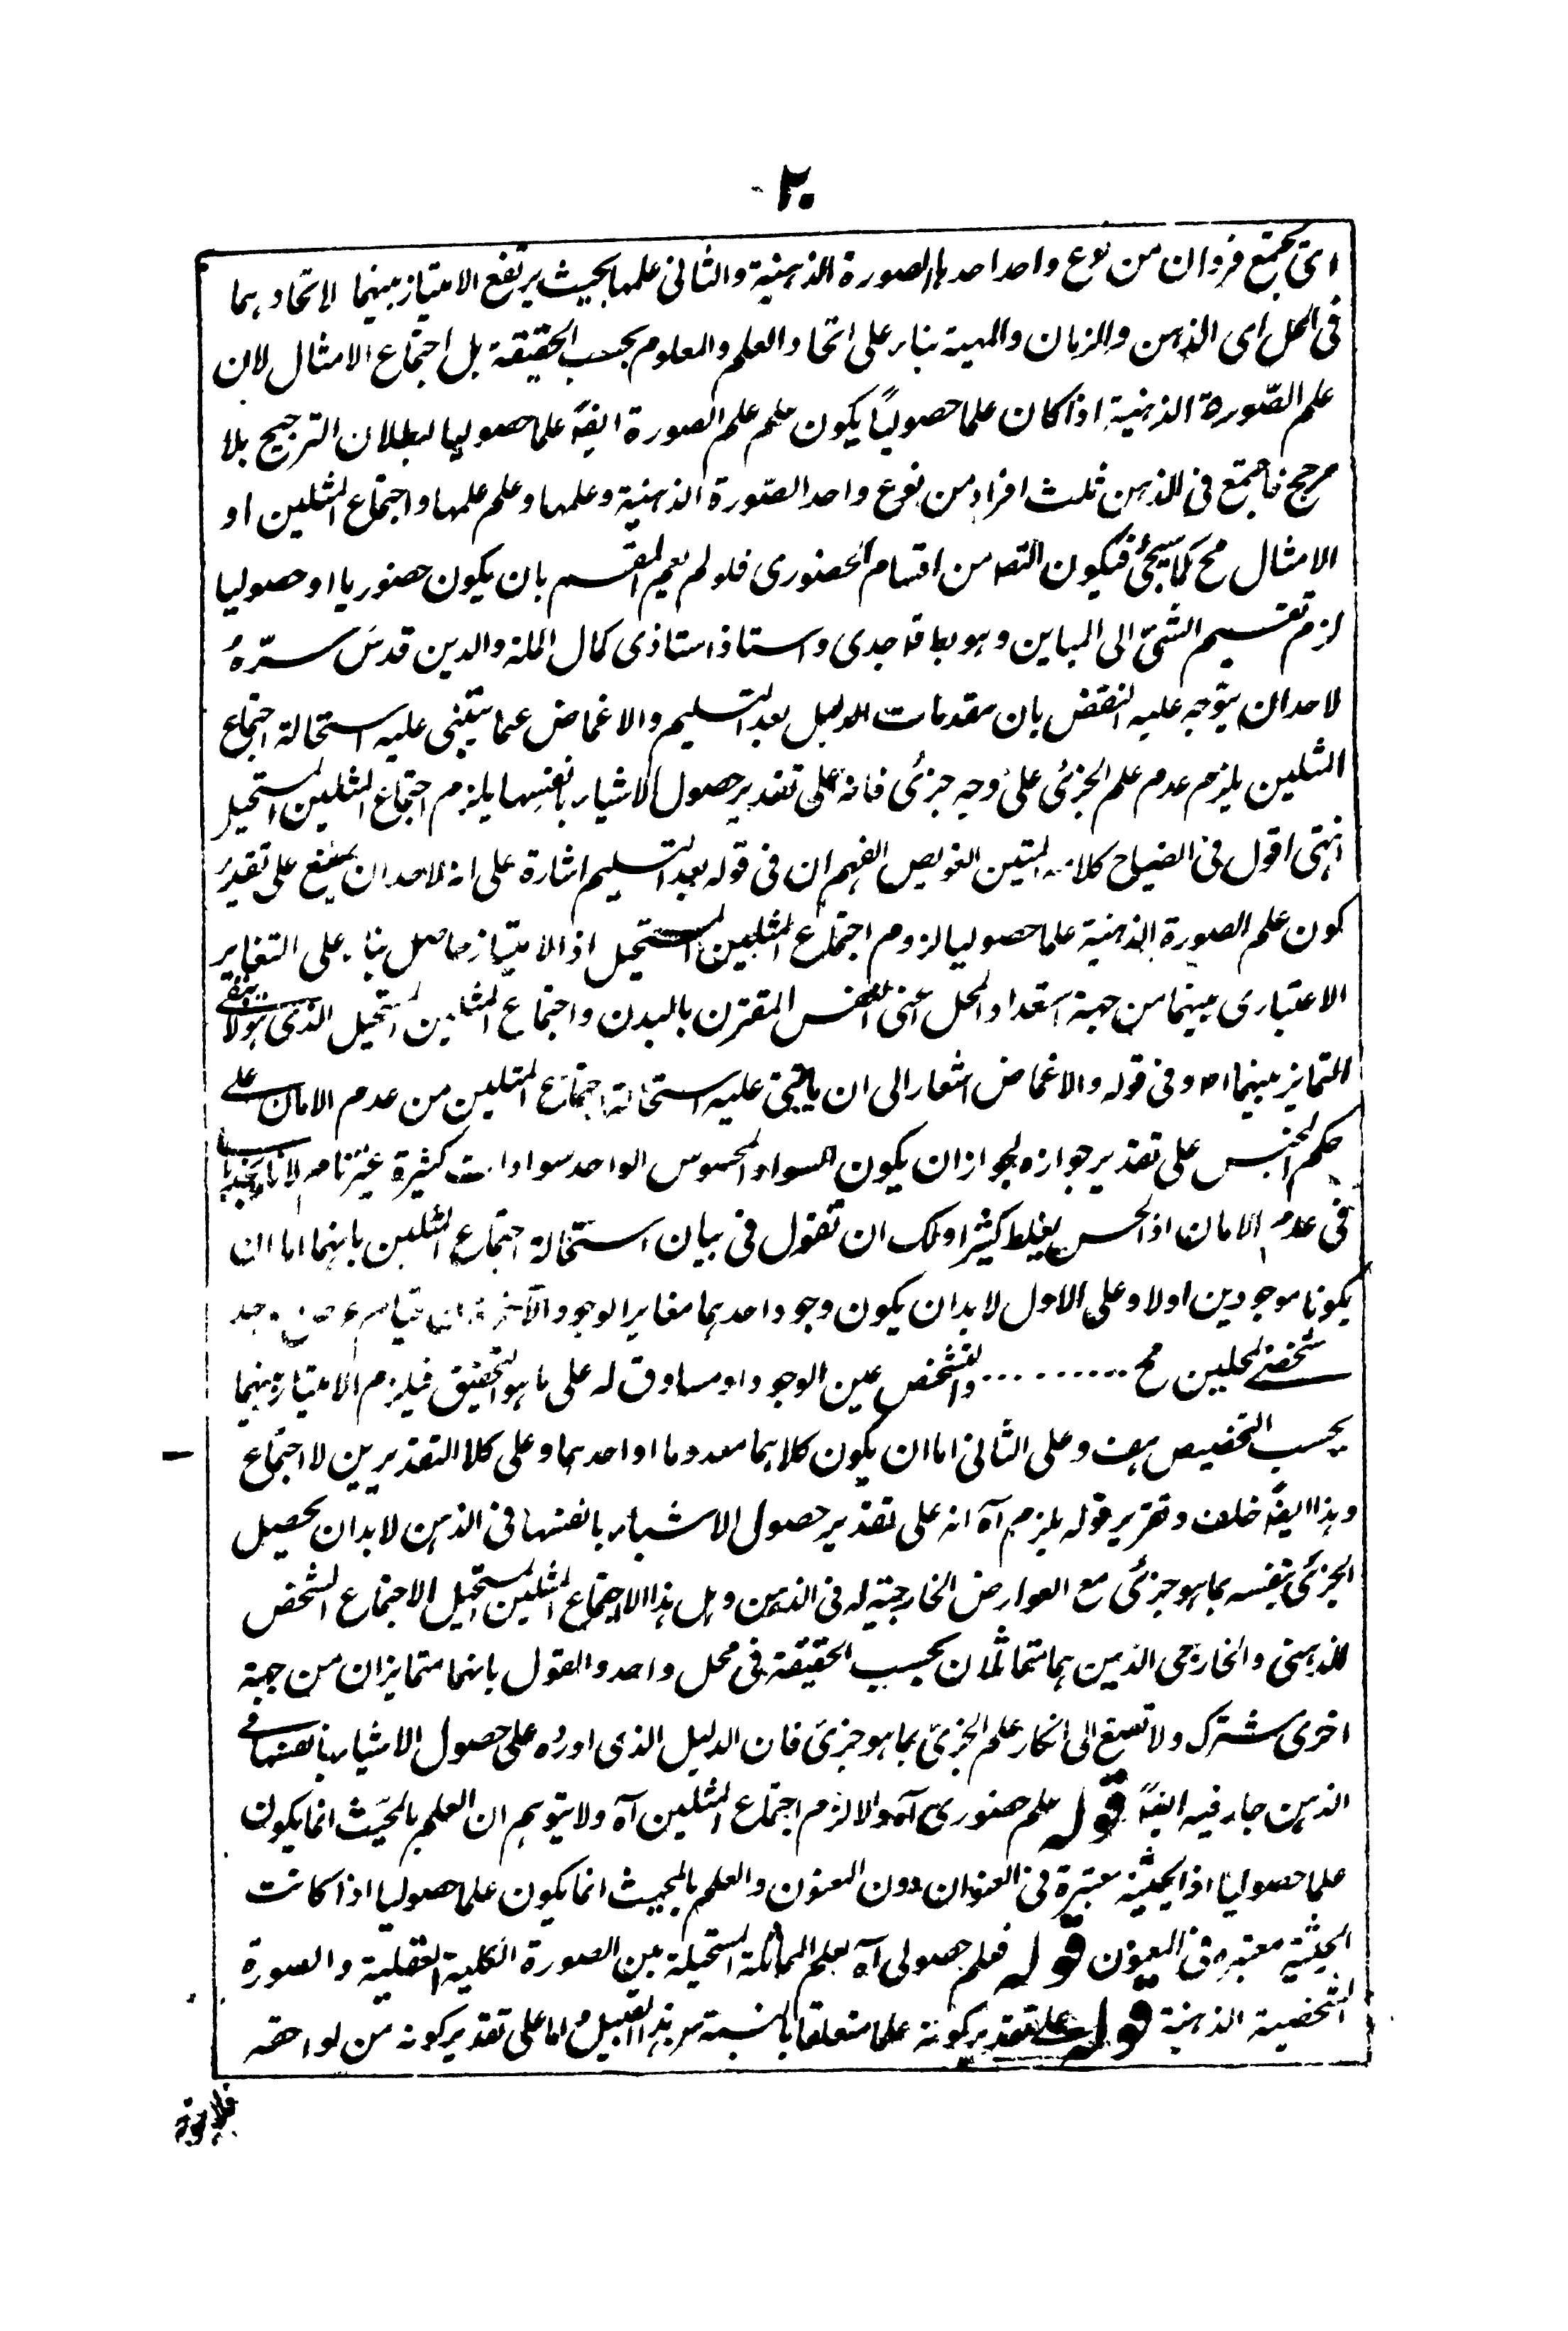 ٢٠
ای یجتمع فردان من نوع واحد احدہا الصورة الذہنیة والثانی علمہا بحیث یرتفع الامتیاز بینہما لاتحادہما
فی المحل ای الذہن والزمان والمہیة بناء علی اتحاد العلم والمعلوم بحسب الحقیقة بل اجتماع الامثال لان
علم الصّورة الذہنیة اذا کان علما حصولیًا یکون علم علم الصورة ایضًا علما حصولیا لبطلان الترجیح بلا
مرجح فاجتمع فی الذہن ثلث افراد من نوع واحد الصّورة الذہنیة وعلمہا وعلم علمہا واجتماع المثلین او
الامثال مح کما سیجئ فیکون التصہ من اقسام الحضوری فلو لم یعم المقسم بان یکون حضوریا او حصولیا
لزم تقسیم الشئ الی المباین وہو بطہ قہ جدی واستاذ استاذی کمال الملة والدین قدس سرّہ
لاحد ان یتوجہ علیہ النقض بان مقدمات الدلیل بعد التسلیم والاغماض عما یبتنی علیہ استحالة اجتماع
المثلین یلزم عدم علم الجزئی علی وجہ جزئی فانہ علی تقدیر حصول الاشیاء بانفسہا یلزم اجتماع المثلین المستحیل
انتہی اقول فی ایضاح کلامہ المتین العویص الفہم ان فی قولہ بعد التسلیم اشارة علی انہ لاحد ان یمنع علی تقدیر
کون علم الصورة الذہنیة علما حصولیا لزوم اجتماع المثلین المستحیل اذ الامتیاز حاصل بناء علی التغایر
الاعتباری بینہما من جہة استعداد المحل اعنی النفس المقترن بالبدن واجتماع المثلین المستحیل الذی ہو لا یبقی
التمایز بینہما اصہ وفی قولہ والاغماض اشعار الی ان ما یبتنی علیہ استحالة اجتماع المثلین من عدم الامان علی
حکم الحس علی تقدیر جوازہ لجواز ان یکون السواد المحسوس الواحد سوادات کثیرة غیر تام لانا
فی عدم الامان اذ الحس یغلط کثیرا ولک ان تقول فی بیان استحالة اجتماع المثلین بانہما اما ان
یکونا موجودین اولا وعلی الاول لا بد ان یکون وجود احدہما مغایر الوجود الآخر قیام عرض واحد
شخصی لمحلین مح .......... والتشخص عین الوجود او مساوق لہ علی ما ہو التحقیق فیلزم الامتیاز بینہما
بحسب التخصیص ہف وعلی الثانی اما ان یکون کلاہما معدوما او احدہما وعلی کلا التقدیرین لا اجتماع
وہذا ایضًا خلف وتقریر قولہ یلزم آہ انہ علی تقدیر حصول الاشیاء بانفسہا فی الذہن لا بد ان یحصل
الجزئی بنفسہ بما ہو جزئی مع العوارض الخارجیة لہ فی الذہن وہل ہذا الا اجتماع المثلین المستحیل الاجتماع الشخص
الذہنی والخارجی الذین ہما متماثلان بحسب الحقیقة فی محل واحد والقول بانہما متمایزان من جہة
اخری مشترک ولا تصغ الی انکار علم الجزئی بما ہو جزئی فان الدلیل الذی اوردہ علی حصول الاشیاء بانفسہا فی
الذہن جار فیہ ایضًا قولہ علم حضوری آہ والا لزم اجتماع المثلین آہ ولا یتوہم ان العلم بالحیث انما یکون
علما حصولیا اذ الحیثیة معتبرة فی العنوان دون المعنون والعلم بالحیث انما یکون علما حصولیا اذا کانت
الحیثیة معتبرة فی المعنون قولہ فعلم حصولی آہ لعلم المماثلة المستحیلة بین الصورة الکلیة العقلیة والصورة
الشخصیة الذہنیة قولہ علی تقدیر کونہ علما متعلقا بالنسبة من ہذا القبیل واما علی تقدیر کونہ من لواحقہ